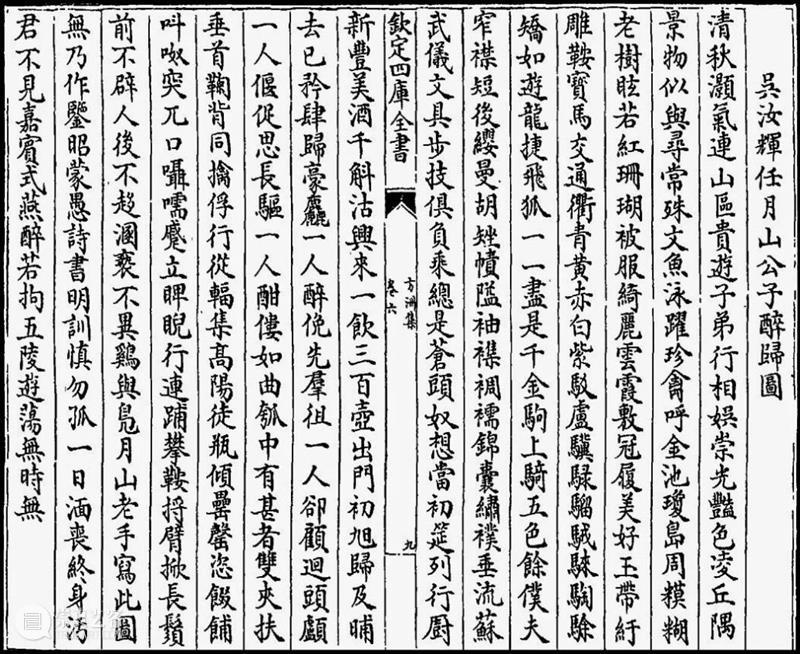 吳汝輝任月山公子醉歸圖
清秋灝氣連山區貴遊子弟行相娛崇光豔色凌丘隅
景物似與尋常殊文魚泳躍珍禽呼金池瓊島周糢糊
老樹眩若紅珊瑚被服綺麗雲霞敷冠履美好玉帶紆
雕鞍寶馬交通衢青黃赤白紫駁盧驥騄騮駥駷騊駼
矯如遊龍捷飛狐一一盡是千金駒上騎五色餘僕夫
窄襟短後纓曼胡矬幘隘袖襍裯襦錦囊繡襆垂流蘇
武儀文具步技俱負乘總是蒼頭奴想當初筵列行厨
欽定四庫全書
方洲集
卷六
九
新豐美酒千斛沽興來一飲三百壺出門初旭歸及晡
去已矜肆歸豪麤一人醉俛先羣徂一人卻顧迴頭顱
一人偃促思長驅一人酣僂如曲瓠中有甚者雙夾扶
垂首鞠背同擒俘行從輻集高陽徒瓶傾罍罄恣餟餔
叫呶突兀口囁嚅蹙立睥睨行連攀鞍捋臂掀長鬚
前不辟人後不趍溷褻不異鷄與鳧月山老手寫此圖
無乃作鑒昭蒙愚詩書明訓慎勿孤一日湎喪終身汚
君不見嘉賓式燕醉若拘五陵遊蕩無時無